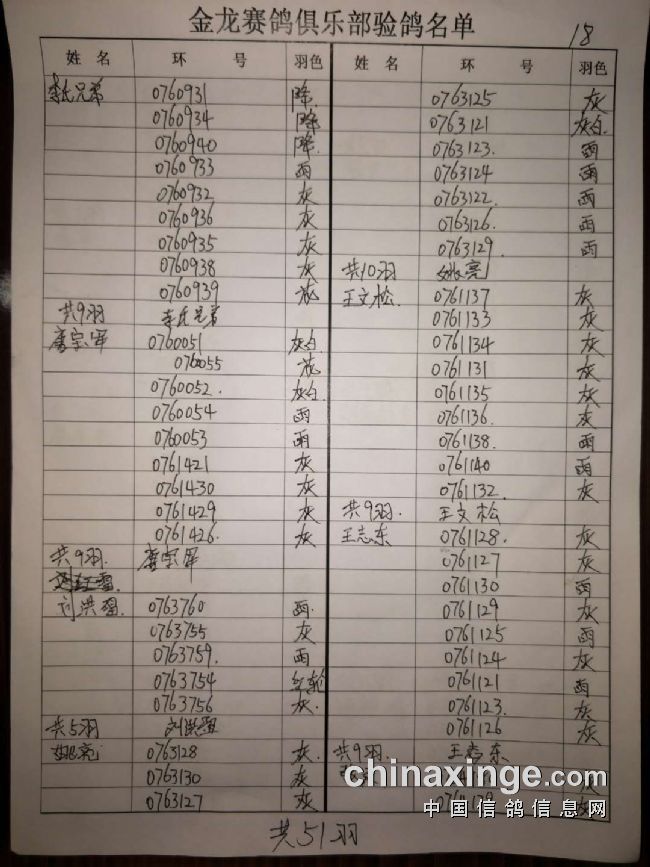 金龙赛鸽俱乐部验鸽名单
18
姓 名 环 号 羽色
李氏兄弟 0760931 降
0760934 降
0760940 降
0760933 雨
0760932 灰
0760936 灰
0760935 灰
0760938 灰
0760939 花
共9羽 李氏兄弟
唐宗军 0760051 灰白
0760055 花
0760052 灰白
0760054 雨
0760053 雨
0761421 灰
0761430 灰
0761429 灰
0761426 灰
共9羽 唐宗军
刘洪
0763760 雨
0763755 灰
0763759 雨
0763754 红轮
0763756 灰
共5羽 刘洪
姚亮 0763128 灰
0763130 灰
0763127 灰
姓 名 环 号 羽色
0763125 灰
0763121 灰白
0763123 雨
0763124 雨
0763122 雨
0763126 雨
0763129 雨
共10羽 姚亮
王文松 0761137 灰
0761133 灰
0761134 灰
0761131 灰
0761135 灰
0761136 灰
0761138 雨
0761140 雨
0761132 灰
共9羽 王文松
王志东 0761128 灰
0761127 灰
0761130 雨
0761129 灰
0761125 雨
0761124 灰
0761121 雨
0761123 灰
0761126 灰
共9羽 王志东
chinaxinge.com
中国信鸽信息网
共51羽